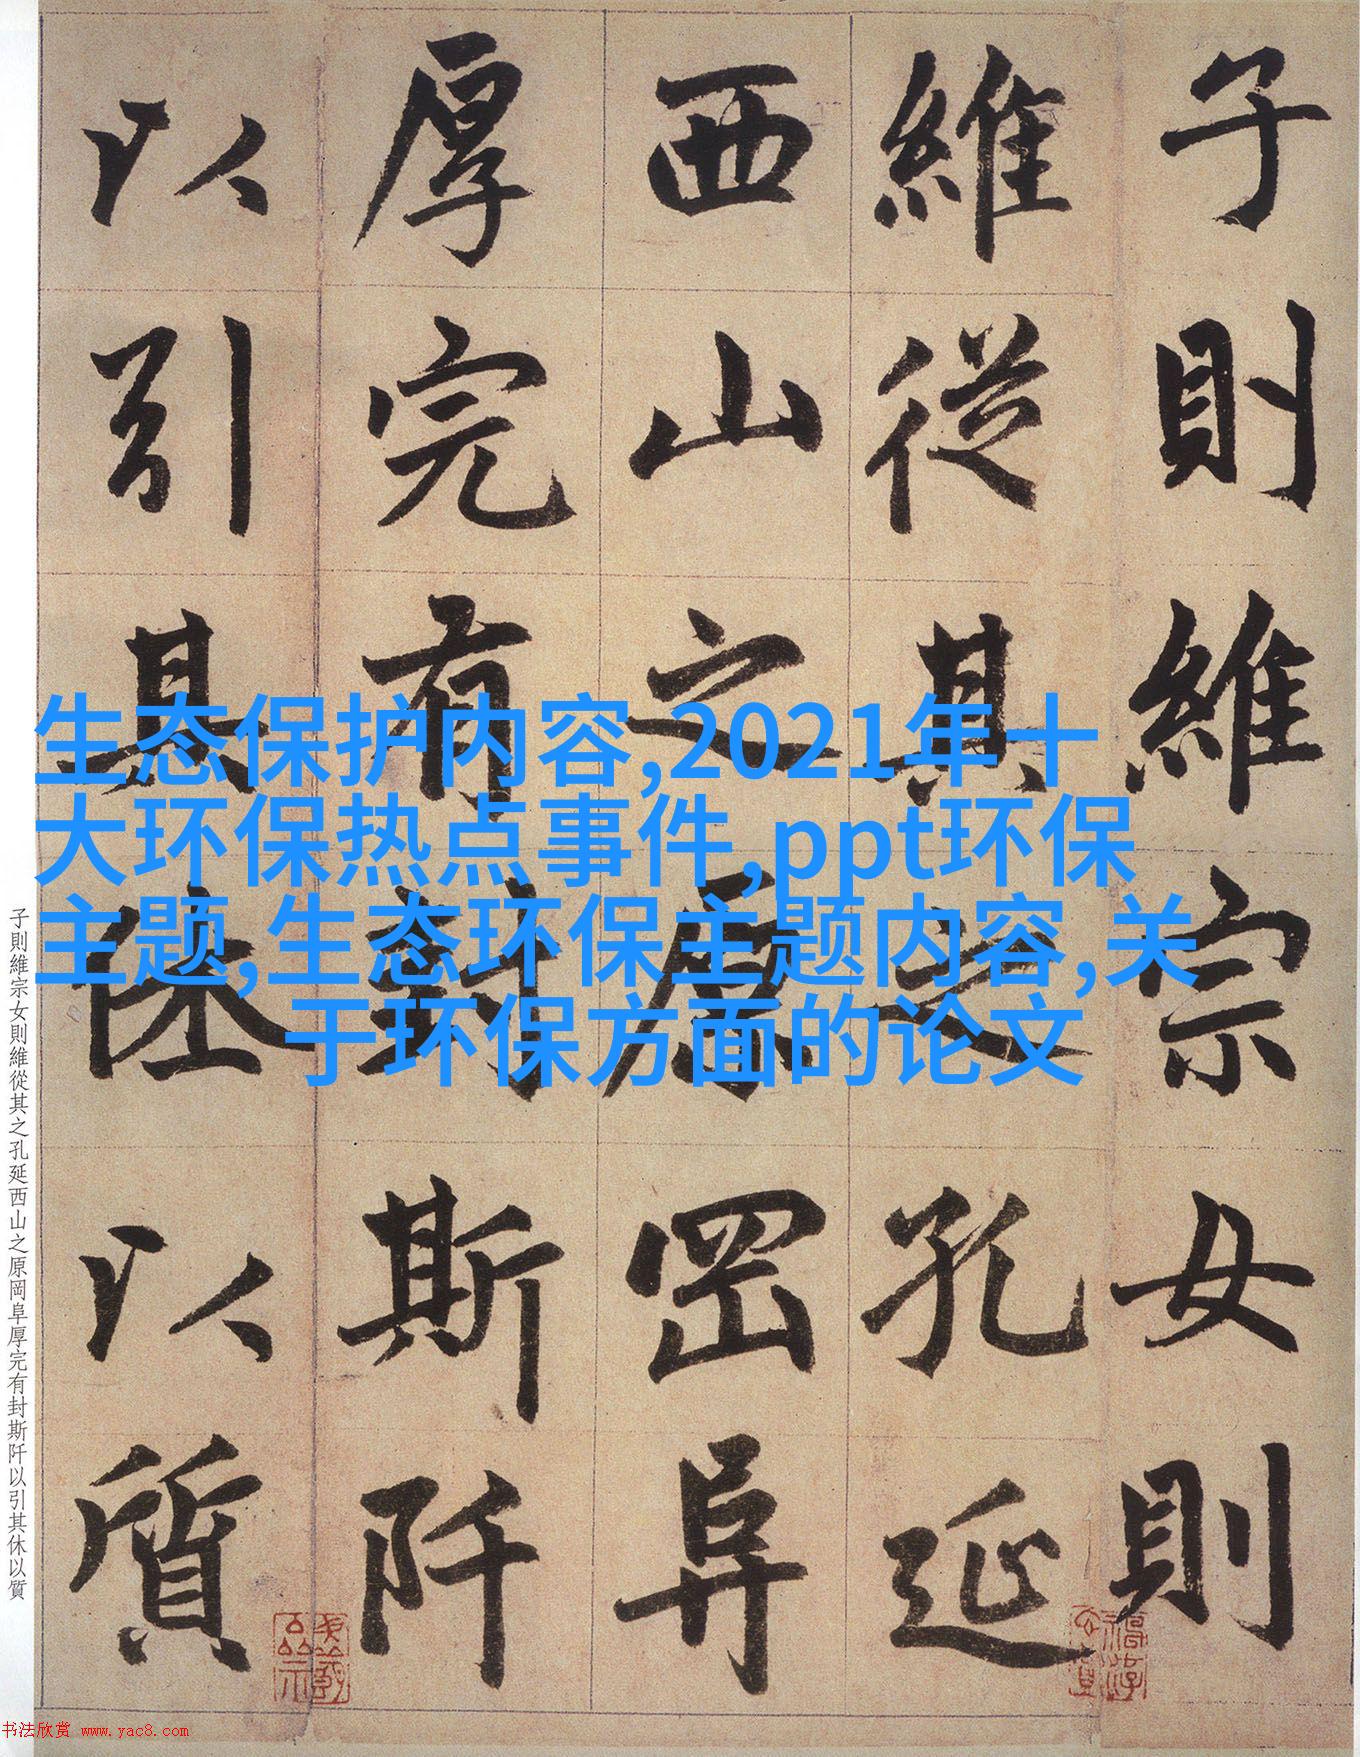 子則維宗女則
維從其之孔延
西山之原岡阜
厚完有封斯阡
以引其休以質
生态保护内容,2021年十
大环保热点事件,ppt环保
主题,生态环保主题内容,关
于环保方面的论文
子則維宗女則維從其之孔延西山之原岡阜厚完有封斯阡以引其休以質
书法欣赏 www.yac8.com